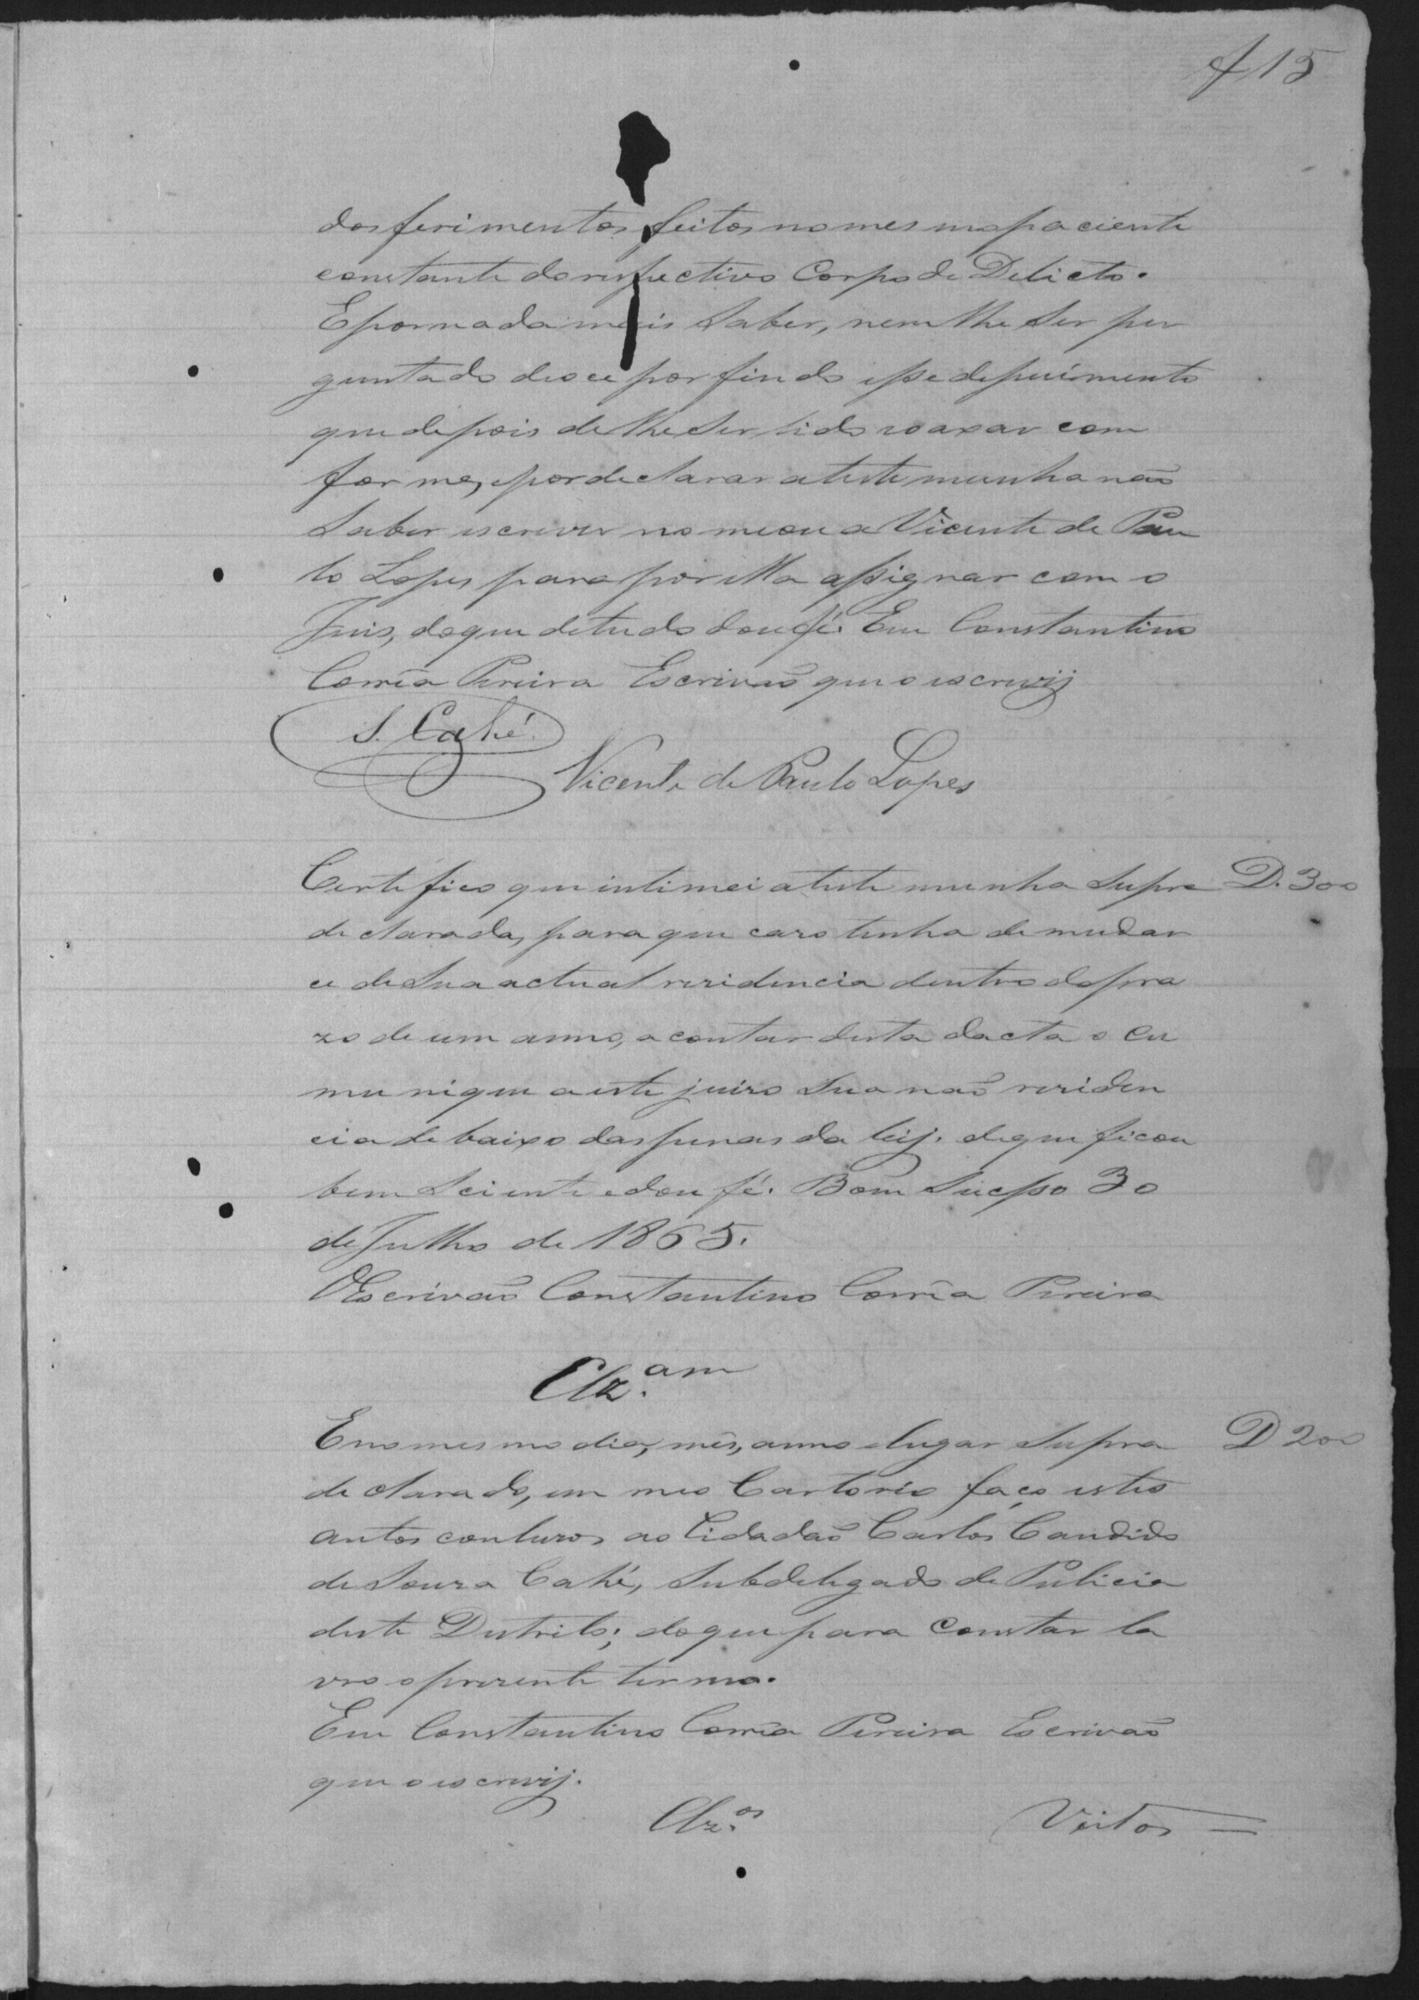 f 15
dos ferimentos feitos no mesmo paciente
constante do respectivo Corpo de Delicto.
E por nada mais Saber, nem lhe Ser per
guntado deoce por findo esse depuimento
que depois de lhe Ser lido o axar com
forme, e por declarar a testemunha não
Saber escrever nomeou a Vicente de Pau
lo Lopes para por ella assignar com o
Juis, do que de tudo dou fé. Eu Constantino
Corrêa Pereira Escrivaõ que o escrevij
S. Cahé.
Vicente de Paulo Lopes
Certefico que intimei a testemunha Supra D. 300
declarada, para que cazo tenha de mudar
ce de Sua actual rezidencia dentro do pra
zo de um anno, a contar desta dacta o cu
munique a este juizo Sua naõ reziden
cia de baixo das penas da leij. de que ficou
bem Sciente e dou fé. Bom Sucesso 30
de Julho de 1865.
O Escrivaõ Constantino Corrêa Pereira
Clz.am
E no mesmo dia, mês, anno e lugar Supra D 200
declarado, em meo Cartorio faço estes
autos concluzos ao Cidadaõ Carlos Candido
de Souza Cahé, Subdelegado de Pulicia
deste Destrito; do que para Constar la
vro o prezente termo.
Eu Constantino Corrêa Pereira Escrivaõ
que o escrevij.
Clz.os
Vistos